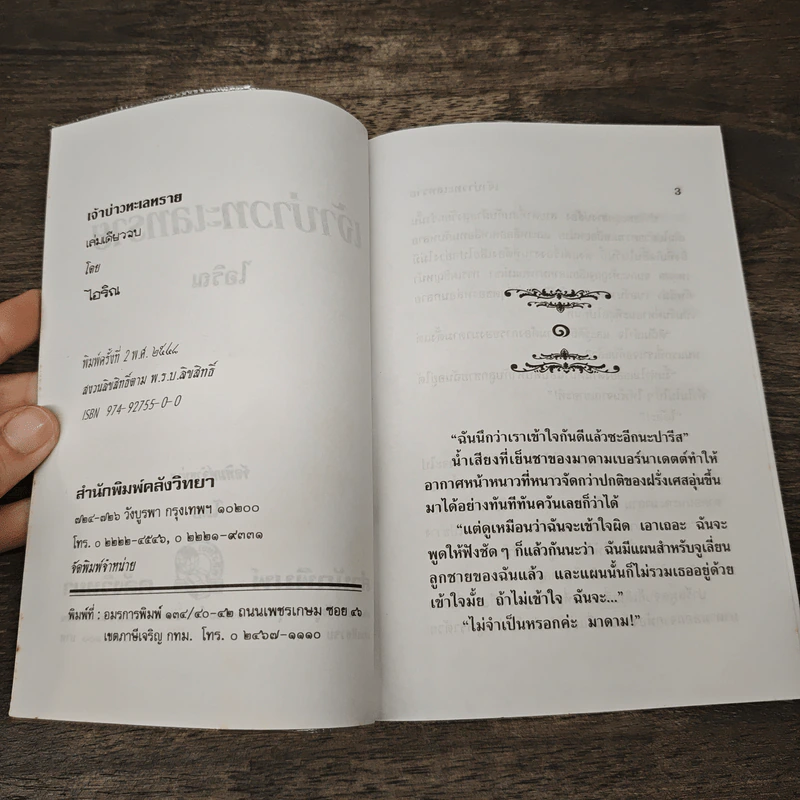 เจ้าบ่าวทะเลทราย
เล่มเดียวจบ
โดย
ไอริณ
พิมพ์ครั้งที่ 2 พ.ศ. ๒๕๔๘
สงวนลิขสิทธิ์ตาม พ.ร.บ.ลิขสิทธิ์
ISBN 974-92755-0-0
สำนักพิมพ์คลังวิทยา
๗๒๔-๗๒๖ วังบูรพา กรุงเทพฯ ๑๐๒๐๐
โทร. ๐ ๒๒๒๒-๔๕๔๖, ๐ ๒๒๒๑-๙๓๓๑
จัดพิมพ์จำหน่าย
พิมพ์ที่ : อมรการพิมพ์ ๑๓๔/๔๐-๔๒ ถนนเพชรเกษม ซอย ๔๖
เขตภาษีเจริญ กทม. โทร. ๐ ๒๔๖๗-๑๑๑๐
3
๑
“ฉันนึกว่าเราเข้าใจกันดีแล้วซะอีกนะปารีส”
น้ำเสียงที่เย็นชาของมาดามเบอร์นาเดตต์ทำให้
อากาศหน้าหนาวที่หนาวจัดกว่าปกติของฝรั่งเศสอุ่นขึ้น
มาได้อย่างทันทีทันควันเลยก็ว่าได้
“แต่ดูเหมือนว่าฉันจะเข้าใจผิด เอาเถอะ ฉันจะ
พูดให้ฟังชัด ๆ ก็แล้วกันนะว่า ฉันมีแผนสำหรับจูเลี่ยน
ลูกชายของฉันแล้ว และแผนนั้นก็ไม่รวมเธออยู่ด้วย
เข้าใจมั้ย ถ้าไม่เข้าใจ ฉันจะ...”
“ไม่จำเป็นหรอกค่ะ มาดาม!”